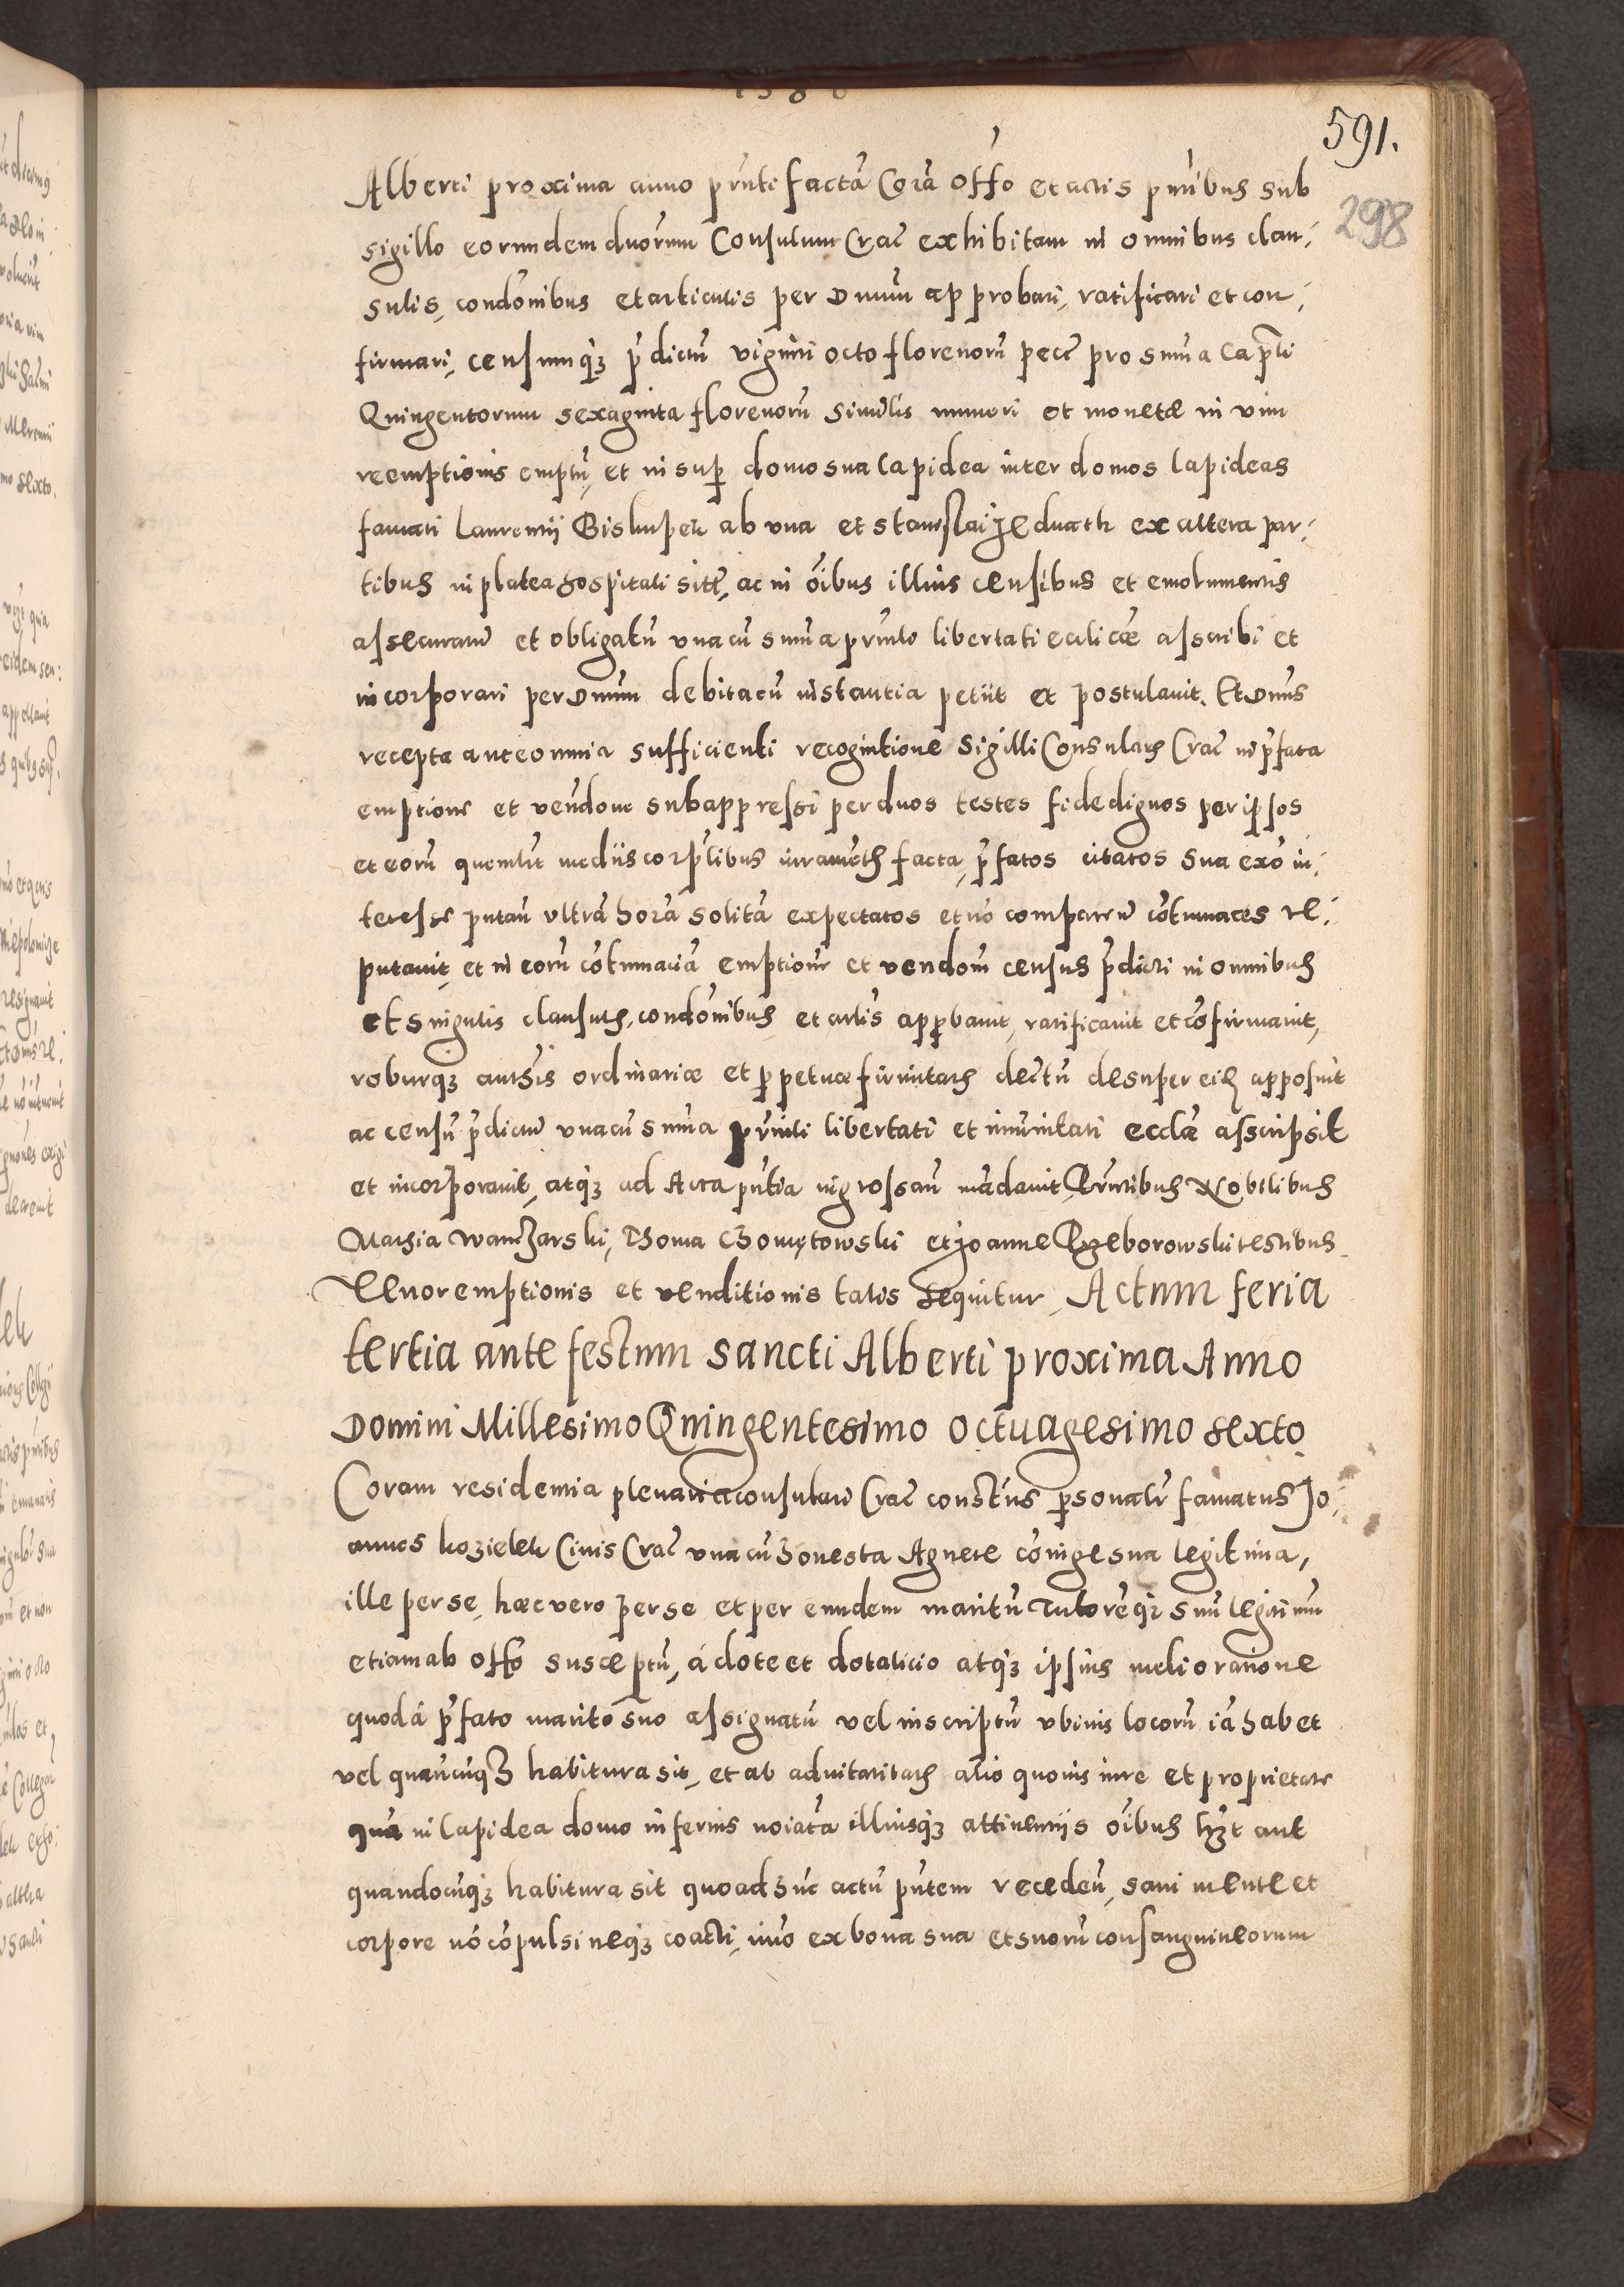 591.
298
Alberti proxima anno pr̃nti factã Corã Offo et actis pñtibus sub
sigillo eorundem duorum Consulum Crac̃ exhibitam in omnibus clau-
sulis, condõnibus et articulis per Dnum approbari, ratificari et con-
firmari, censumq₃ p̃dictũ viginti octo florenorũ pec̃ pro sum̃a Cap̃li
Quingentorum sexaginta florenorũ similis numeri et monetæ in vim
reemptionis emptũ, et in sup̱ domo sua Lapidea inter domos lapideas
famati Laurentij Biskupek ab vna et Stanislai Jeduath ex altera par-
tibus in platea Hospitali sitt̃, ac in oĩbus illius censibus et emolumentis
assecuratũ et obligatũ vna cũ sum̃a pr̃nto libertati ecclicæ asscribi et
incorporari per Dnum debita cũ instantia petijt et postulavit. Et Dnus
recepta ante omnia sufficienti recognitione Sigilli Consularis Crac̃ in p̃fata
emptione et vendone subappressi per duos testes fide dignos per ipsos
et eorũ quemlt̃ medijs corp̃libus iuramentis facta, p̃fatos citatos sua ex̃o in-
teresse putañ vltrã horã solitã expectatos et nõ comparen̄ cõtumaces re-
putavit, et in eorũ cõtumaciã emptionẽ et vendonẽ census p̃dicti in omnibus
et singulis clausulis, condõnibus et artlis app̱bavit, ratificavit et cõfirmavit,
roburq₃ authis ordinariæ et p̱petuæ firmitatis dectũ desuper eisd̃ apposuit
ac censũ p̃dictũ vna cũ sum̃a pr̃nti libertati et im̃unitati ecclæ asscripsit
et incorporavit, atq₃ ad Acta pñtia ingrossañ mãdavit, Pr̃ntibus Nobilibus
Mathia Wanczarski, Thoma Chomętowski et Joanne Rzeborowski testibus.
Tenor emptionis et venditionis talis sequitur, Actum feria
tertia ante festum Sancti Alberti proxima Anno
Domini Millesimo Quingentesimo Octuagesimo sexto
Coram residentia plenaria consulari Crac̃ constũs p̱sonalr̃ famatus Jo-
annes kozielek Civis Crac̃ vna cũ honesta Agnete cõiuge sua legitima,
ille per se, hæc vero per se et per eundem maritũ Tutorẽq₃ suũ legitimũ
etiam ab Offo susceptũ, à dote et dotalicio atq₃ ipsius melioratione
quod à p̃fato marito suo assignatũ vel inscriptũ vbivis locorũ iã habet
vel quancũq₃ habitura sit, et ab advitalitatis alio quovis iure et proprietate
quã in lapidea domo inferius noiatã illiusq₃ attinentijs oĩbus h̃t aut
quandocũq₃ habitura sit quoad hũc actũ pñtem receden̄, sani mente et
corpore nõ cõpulsi neq₃ coacti, imo ex bona sua et suorũ consanguineorum